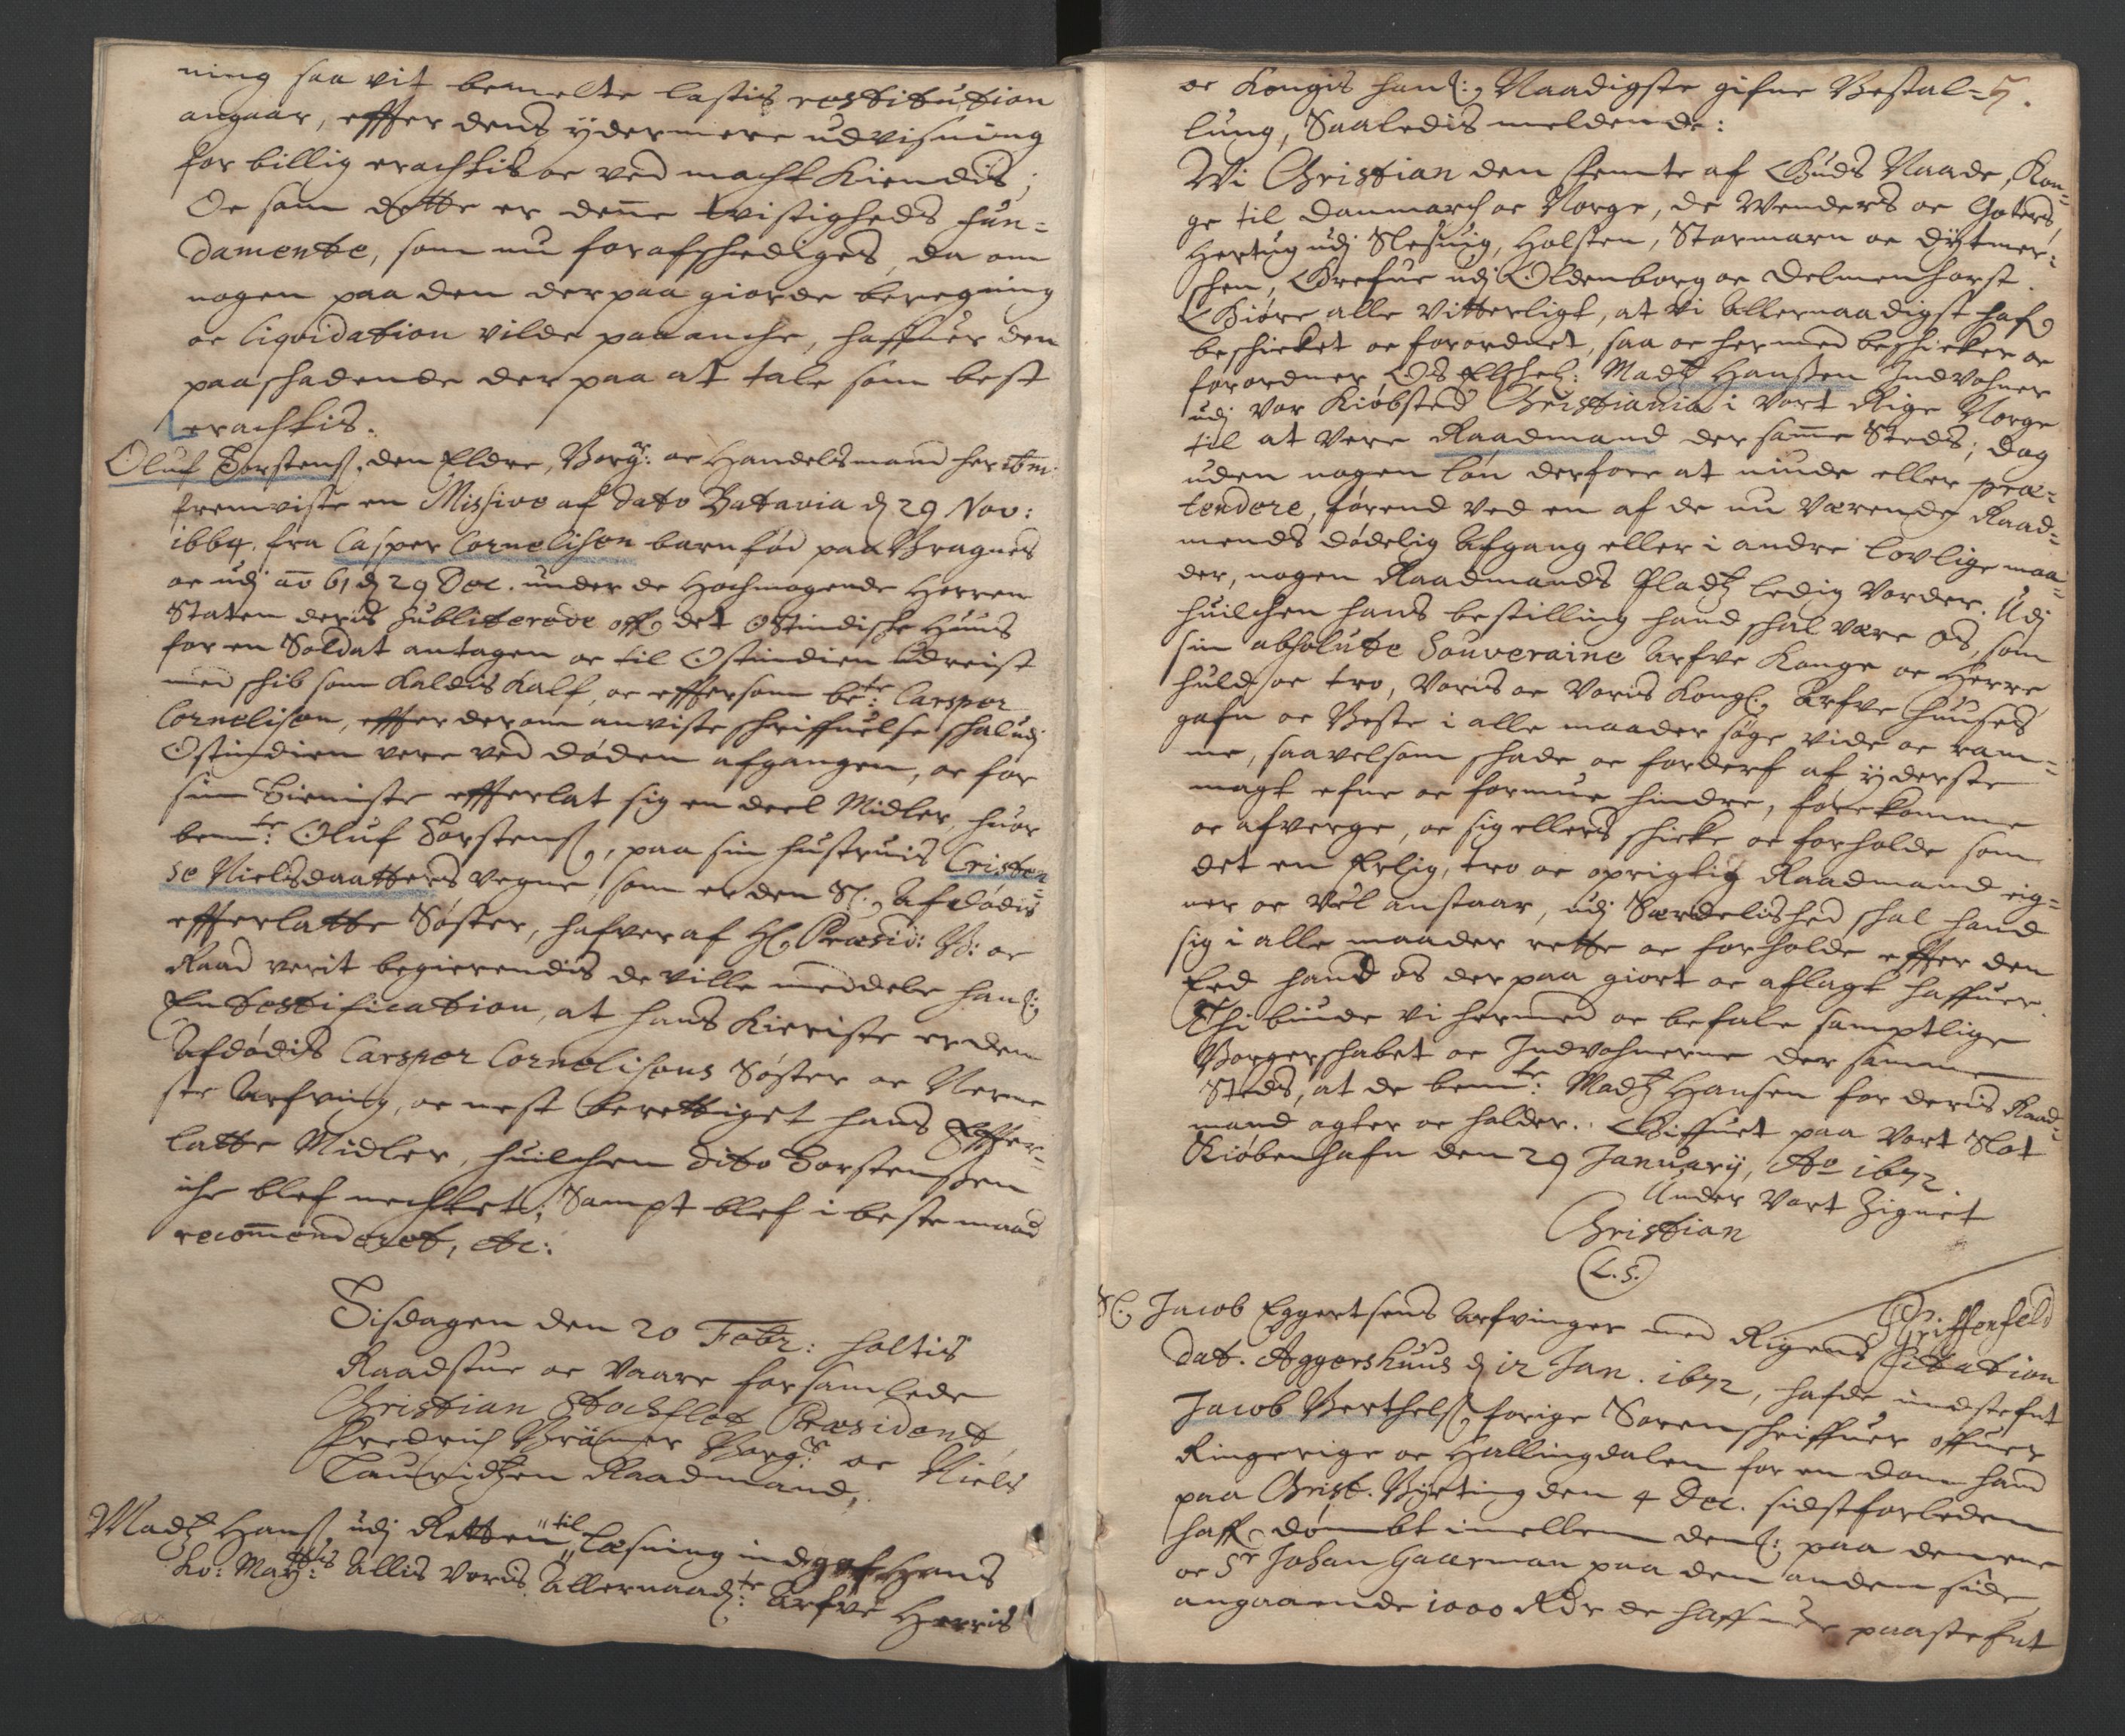 ning saa vit bemelte lastis restitution
angaar, effter dens ydermere udvisning
for billig erachtis oc ved macht kiendis;
Oc som dette er denne tvistigheds fun=
damente, som nu forafschediges, da om
nogen paa den derpaa giorde beregning
oc liqvidation vilde paaanche, haffuer den
paaschadende der paa at tale som best
erachtis.
Oluf Torstens. den Eldre, Borg: oc Handelsmand her ibm.
fremviste en Missive af dato Batavia d 29 Nov:
1664. fra Casper Cornelisøn barnfød paa Bragnes
oc udj ao 61 d 29 Dec. under de Hochmogende Herren
Staten deris off det Ostindische Huus
for en Soldat antagen oc til Ostindien udreist
med schib som kaldis Kalf, oc effter som bete: Carsper
Cornelisøn, effter derom anviste schriffuelse schal udj
Ostindien vere ved døden afgangen, oc for
sin Tieniste effterlat sig en deel Midler, huor
bemte: Oluf Torstens, paa sin hustruis Criste=
se Nielsdaatters vegne, som er den Sl. Afdødis
effterlatte Søster, hafver af Hl. Præsid: B: oc
Raad verit begierendis de ville meddele hans:
En testification, at hans Kieriste er den
Afdødis Carsper Cornelisøns Søster oc Nerme=
ste Arfving, oc nest berettiget hans Effter=
latte Midler, huilchen dito Torstenssen
iche blef nechtet; Sampt blef i beste maad
recommenderet, etc:
Tisdagen den 20 Febr: holtis
Raadstue oc vaare forsamlede
Christian Stochflet Præsident,
Fredrich Brämer Borgr: oc Niels
Lauridtzen Raadmand,
Madtz Hans. udj Retten til læsning indgaf Hans
Ko: Maytts: Allis voris Allernaadte: Arfve Herris
oc Kongis hans: Naadigste gifne Bestal= 5.
lung, Saaledis meldende:
Wi Christian den Femte af Guds Naade, Kon=
ge til Danmarch oc Norge, de Wenders oc Goters,
Hertug udj Slesuig, Holsten, Stormarn oc Dytmer=
schen, Grefue udj Oldenborg oc Delmenhorst.
Giøre alle vitterligt, at vi Allernaadigst haf
beschicket oc forordnet, saa oc hermed beschicker oc
forordner Os Elschel: Madtz Hanssen Indvohner
udj vor Kiøbsted Christiania i vort Rige Norge
til at vere Raadmand der samme Steds; dog
uden nogen løn derfore at niude eller præ=
tendere, førend ved en af de nu værende Raad=
mends dødelig Afgang eller i andre lovlige maa=
der, nogen Raadmands Pladtz ledig vorder. Udj
huilchen hans bestilling hand schal være os, som
sin absolute Souveraine Arfve Konge oc Herre
huld oc tro, voris oc voris Kongl. Arfve Huuses
gafn oc Beste i alle maader søge, vide oc ram=
me, saavelsom schade oc forderf af yderste
magt efne oc formue hindre, forekomme
oc afverge, oc sig ellers schicke oc forholde som
det en Erlig, tro oc oprigtig Raadmand eig=
ner oc vel anstaar, udj Særdelished schal hand
sig i alle maader rette oc forholde effter den
Eed hand os der paa giort oc aflagt haffuer.
Thi biude vi hermed oc befale samptlige
Borgerschabet oc Indvohnerne der samme
Steds, at de bemte: Madtz Hansen for deris Raad=
mand agter oc holder. Giffuet paa vort Slot
Kiøbenhafn den 29 January, Ao 1672
Under vort Zignet
Christian
(L.S.)
Griffenfeld
Sl. Jacob Eggertsens Arfvinger med Rigens Citation
dat. Aggershuus d 12 Jan. 1672, hafde indstefnt
Jacob Berthels. forige Sorenschriffuer offuer
Ringerige oc Hallingdalen for en dom hand
paa Christ. Byeting den 4 Dec. sidstforleden
haff dømbt imellem dens: paa den ene
oc Sr Johan Gaarman paa den anden side,
angaaende 1000 Rdr de haffuer paastefnt